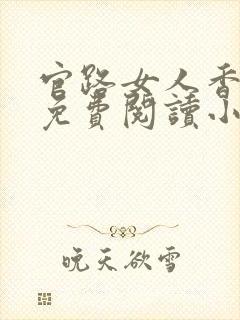 官路女人香
免費閱讀小
晚天欲雪